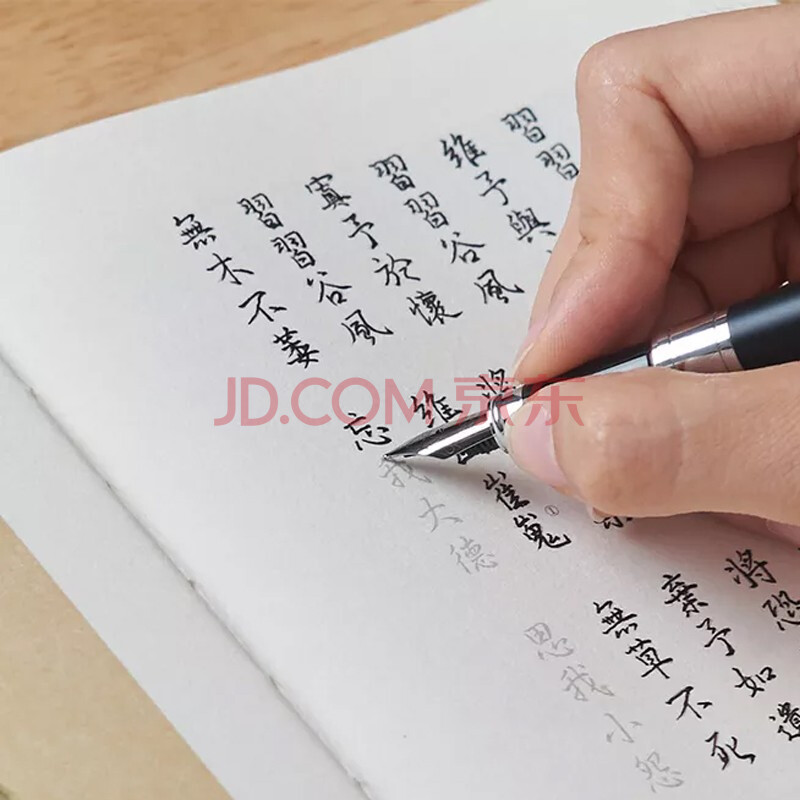 習習
維予與
習習谷風 將恐
寘予於懷 將 棄予如遺
習習谷風 維 崔嵬① 無草不死
無木不萎 忘我大德 思我小怨
JD.COM 京东